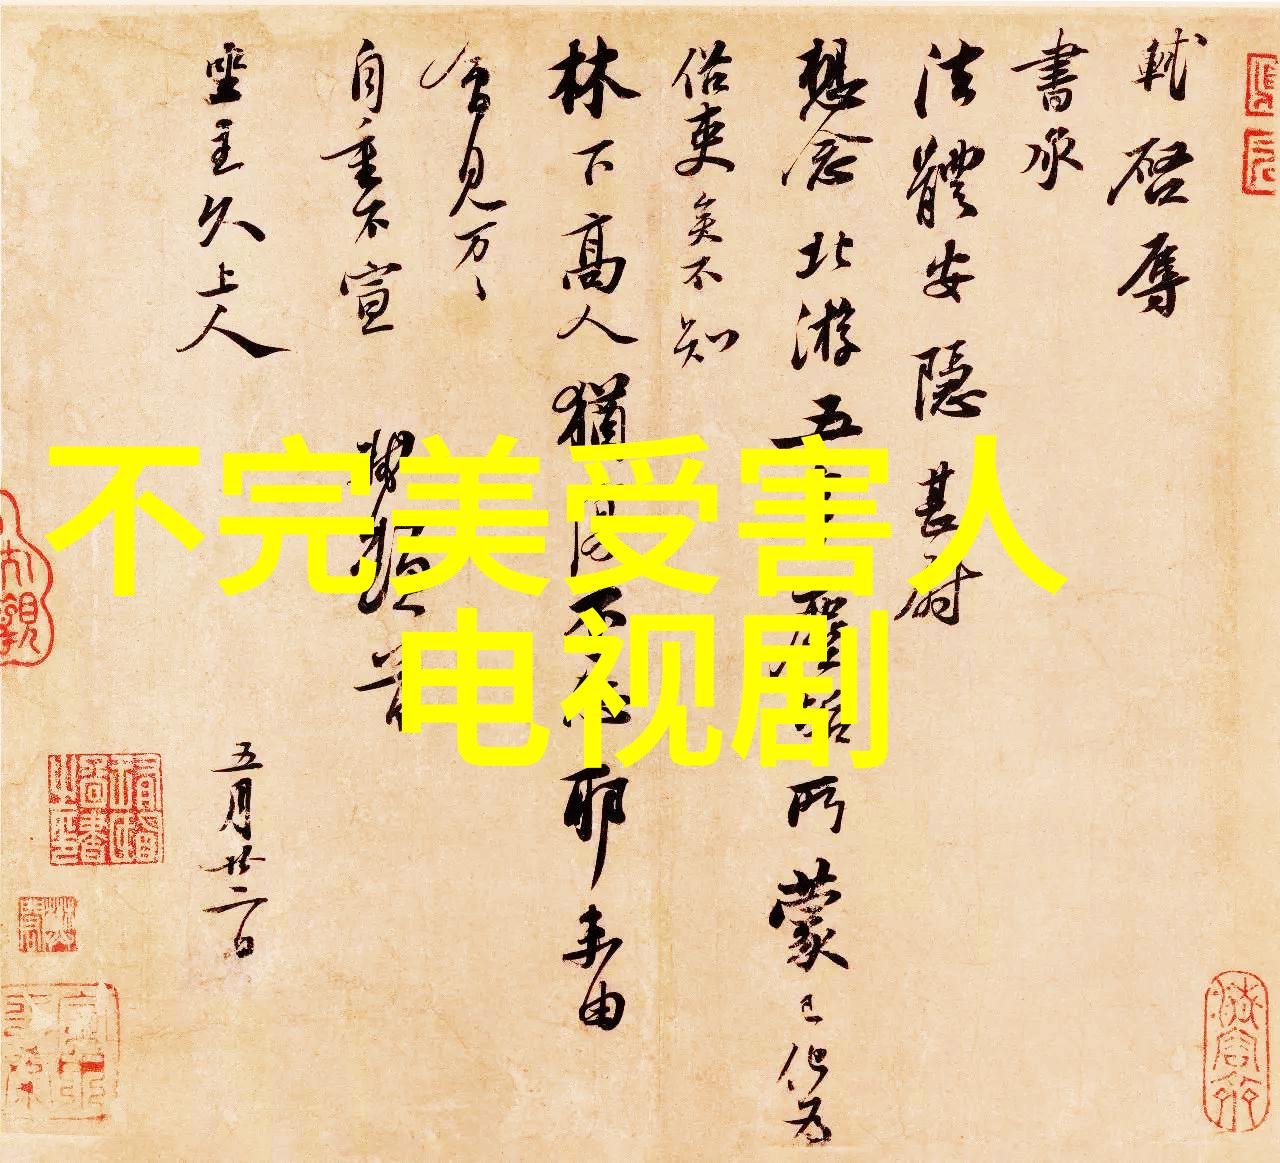 不完美受害人
电视剧
軾啓辱
書承
法體安隱甚尉
想念北游五所蒙已化為
俗吏矣不知
林下高人猶不耶未由
會見万〻
自重不宣 軾頓首
坐主久上人
五月廿二日